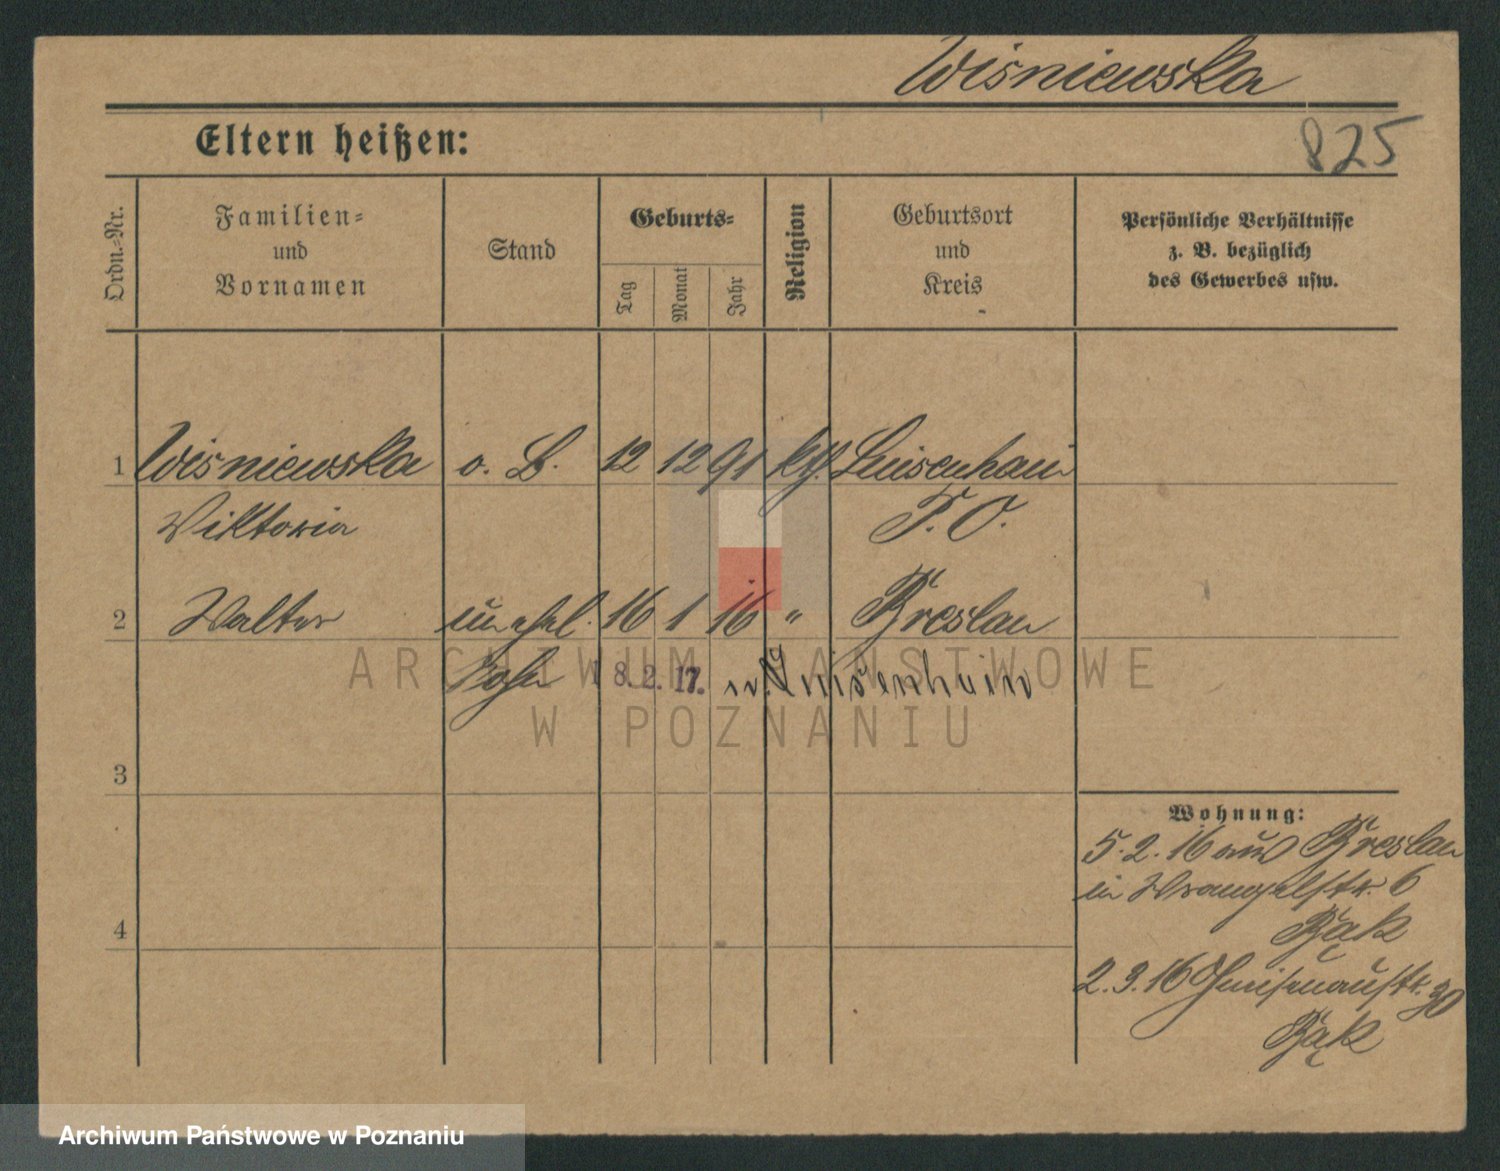 Wiśniewska
825
Eltern heißen:
Ordn.=Nr.
Familien=
und
Vornamen
Stand
Geburts=
Tag
Monat
Jahr
Religion
Geburtsort
und
Kreis
Persönliche Verhältnisse
z. B. bezüglich
des Gewerbes usw.
1 Wiśniewska o. B. 12 12 91 kth. Luisenhain
Viktoria P. O.
2 Walter unehl. 16 1 16 " Breslau
Sohn 18. 2. 17. n. Luisenhain
ARCHIWUM PAŃSTWOWE
W POZNANIU
3
4
Wohnung:
5. 2. 16 aus Breslau
in Wrangelstr. 6
Bąk
2. 3. 16 Gneisenaustr. 30
Bąk
Archiwum Państwowe w Poznaniu